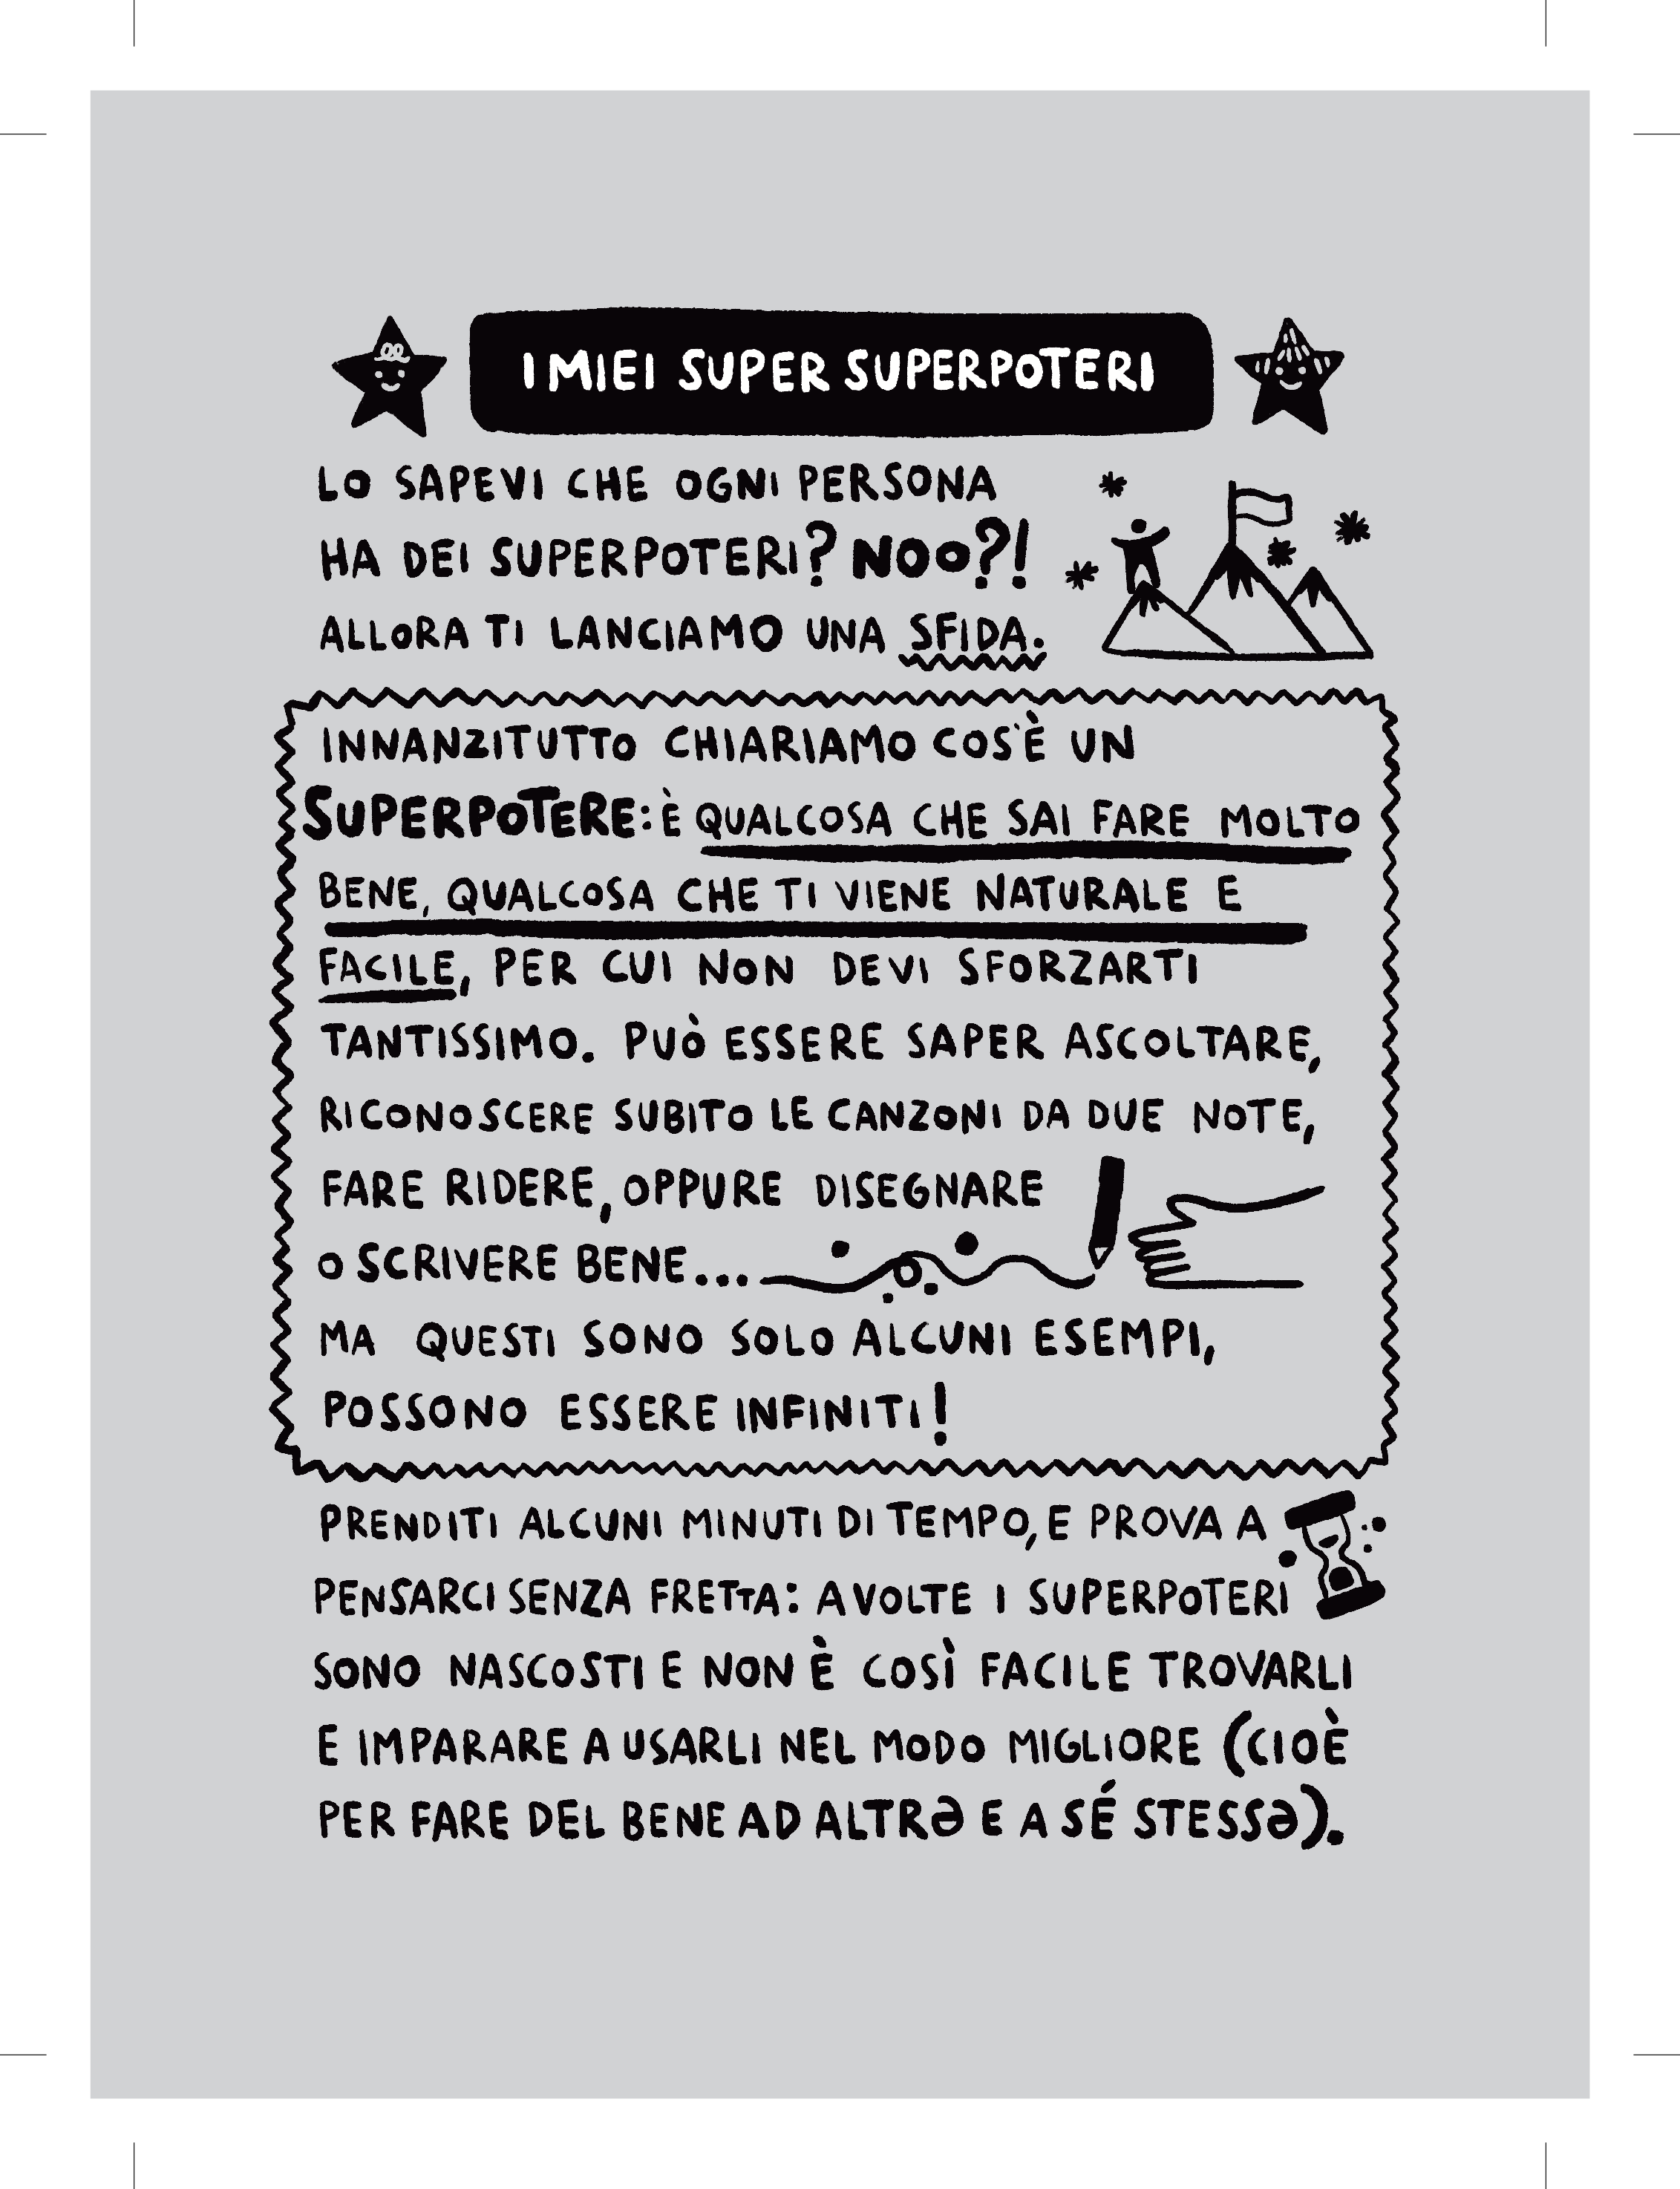 I MIEI SUPER SUPERPOTERI
LO SAPEVI CHE OGNI PERSONA
HA DEI SUPERPOTERI? NOO?!
ALLORA TI LANCIAMO UNA SFIDA.
INNANZITUTTO CHIARIAMO COS'È UN
SUPERPOTERE: È QUALCOSA CHE SAI FARE MOLTO
BENE, QUALCOSA CHE TI VIENE NATURALE E
FACILE, PER CUI NON DEVI SFORZARTI
TANTISSIMO. PUÒ ESSERE SAPER ASCOLTARE,
RICONOSCERE SUBITO LE CANZONI DA DUE NOTE,
FARE RIDERE, OPPURE DISEGNARE
O SCRIVERE BENE...
MA QUESTI SONO SOLO ALCUNI ESEMPI,
POSSONO ESSERE INFINITI!
PRENDITI ALCUNI MINUTI DI TEMPO, E PROVA A
PENSARCI SENZA FRETTA: A VOLTE I SUPERPOTERI
SONO NASCOSTI E NON È COSÌ FACILE TROVARLI
E IMPARARE A USARLI NEL MODO MIGLIORE (CIOÈ
PER FARE DEL BENE AD ALTRƏ E A SÉ STESSƏ).